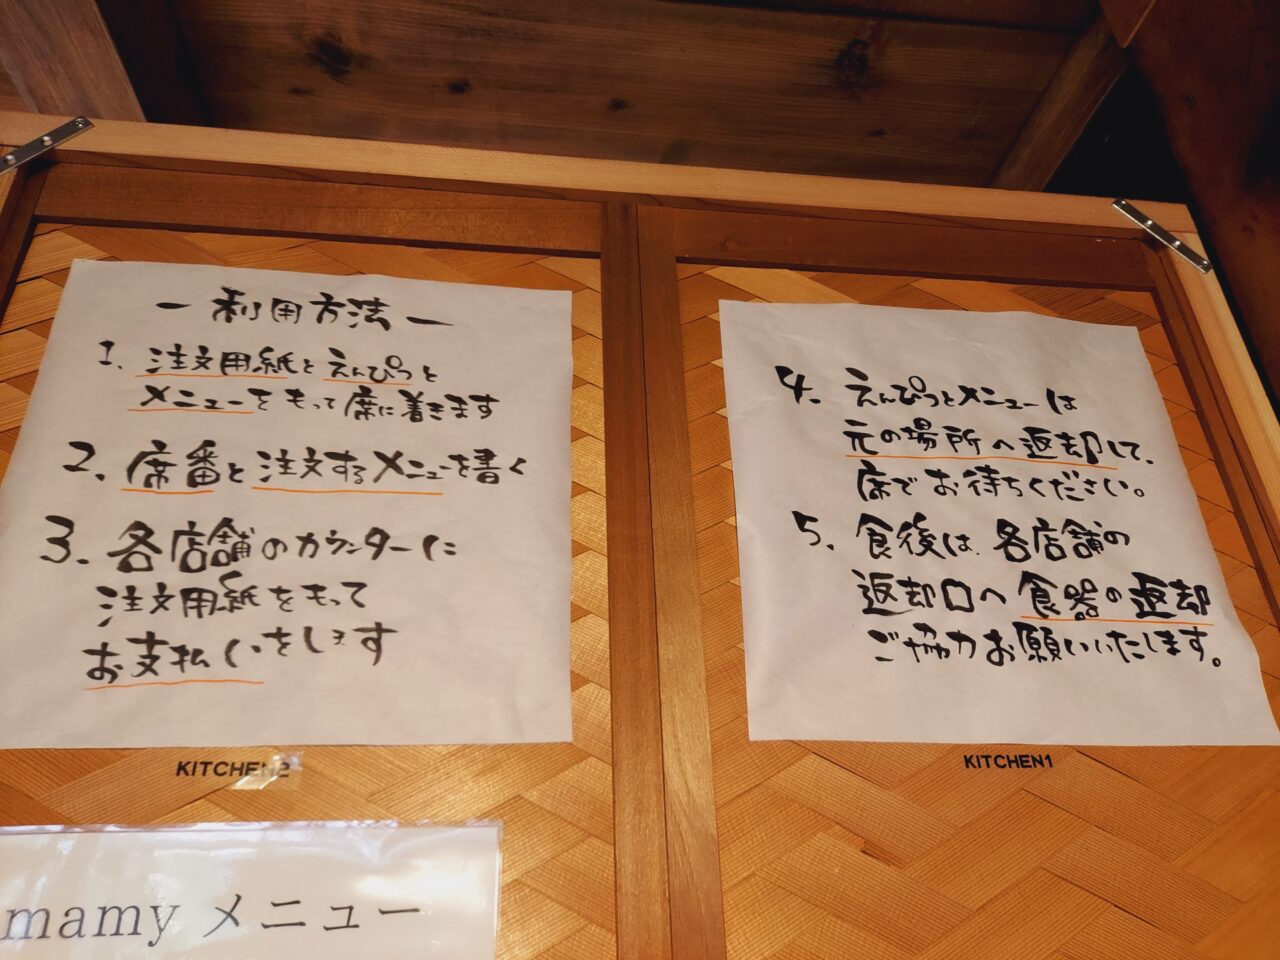 ー利用方法ー
1. 注文用紙とえんぴつと
メニューをもって席に着きます
2. 席番と注文するメニューを書く
3. 各店舗のカウンターに
注文用紙をもって
お支払いをします
KITCHEN2
mamy メニュー
4. えんぴつとメニューは
元の場所へ返却して、
席でお待ちください。
5. 食後は、各店舗の
返却口へ食器の返却
ご協力お願いいたします。
KITCHEN1